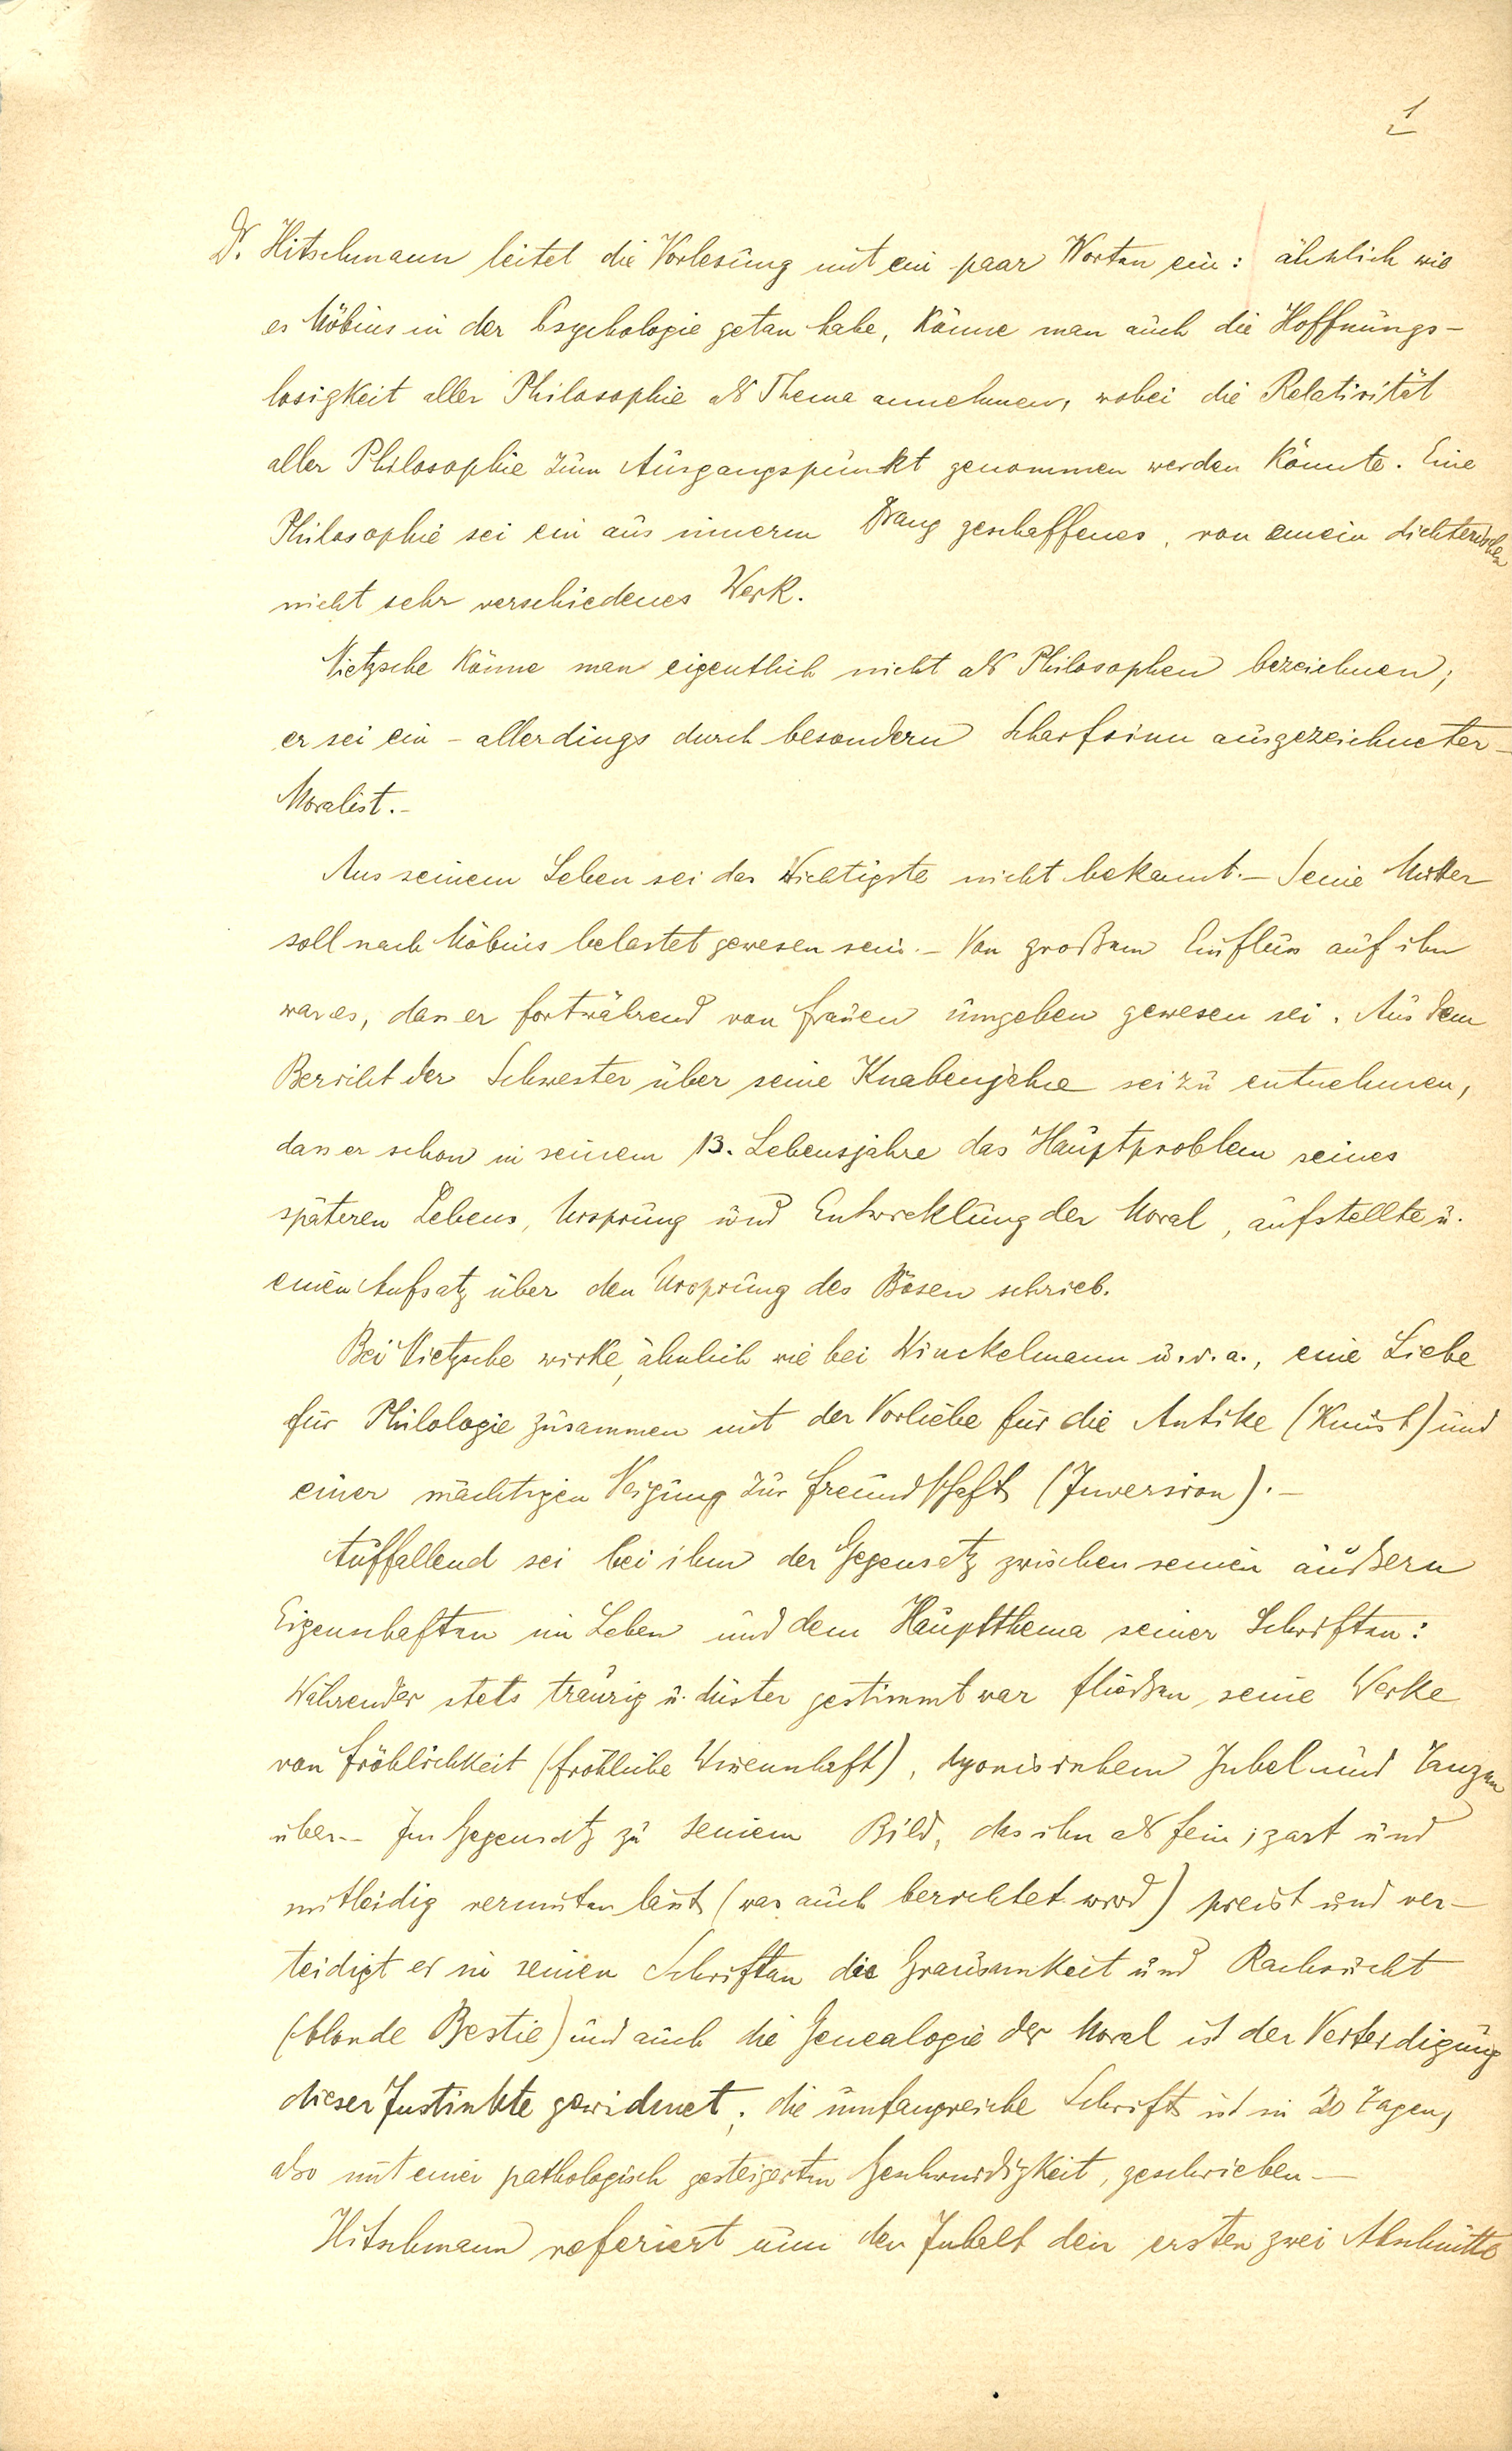 1
Dr. Hitschmann leitet die Vorlesung mit ein paar Worten ein: ähnlich wie
es Möbius in der Psychologie getan habe, könne man auch die Hoffnungs-
losigkeit aller Philosophie als Thema annehmen, wobei die Relativität
aller Philosophie zum Ausgangspunkt genommen werden könnte. Eine
Philosophie sei ein aus innerm Drang geschaffenes, von einem dichterischen
nicht sehr verschiedenes Werk.
Nietzsche könne man eigentlich nicht als Philosophen bezeichnen;
er sei ein – allerdings durch besondern Scharfsinn ausgezeichneter –
Moralist. –
Aus seinem Leben sei das Wichtigste nicht bekannt. – Seine Mutter
soll nach Möbius belastet gewesen sein. – Von großem Einfluss auf ihn
war es, dass er fortwährend von Frauen umgeben gewesen sei. Aus dem
Bericht der Schwester über seine Knabenjahre sei zu entnehmen,
dass er schon in seinem 13. Lebensjahre das Hauptproblem seines
späteren Lebens, Ursprung und Entwicklung der Moral, aufstellte u.
einen Aufsatz über den Ursprung des Bösen schrieb.
Bei Nietzsche wirke, ähnlich wie bei Winckelmann u. v. a., eine Liebe
für Philologie zusammen mit der Vorliebe für die Antike (Kunst) und
einer mächtigen Neigung zur Freundschaft (Inversion). –
Auffallend sei bei ihm der Gegensatz zwischen seinen äußern
Eigenschaften im Leben und dem Hauptthema seiner Schriften:
Während er stets traurig u. düster gestimmt war fließen seine Werke
von Fröhlichkeit (fröhliche Wissenschaft), dyonisischem Jubel und Tanzen
über. – Im Gegensatz zu seinem Bild, das ihn als fein, zart und
mitleidig vermuten lässt (was auch berichtet wird) preist und ver-
teidigt er in seinen Schriften die Grausamkeit und Rachsucht
(blonde Bestie) und auch die Genealogie der Moral ist der Verteidigung
dieser Instinkte gewidmet; die umfangreiche Schrift ist in 20 Tagen,
also mit einer pathologisch gesteigerten Geschwindigkeit, geschrieben –
Hitschmann referiert nun den Inhalt der ersten zwei Abschnitte